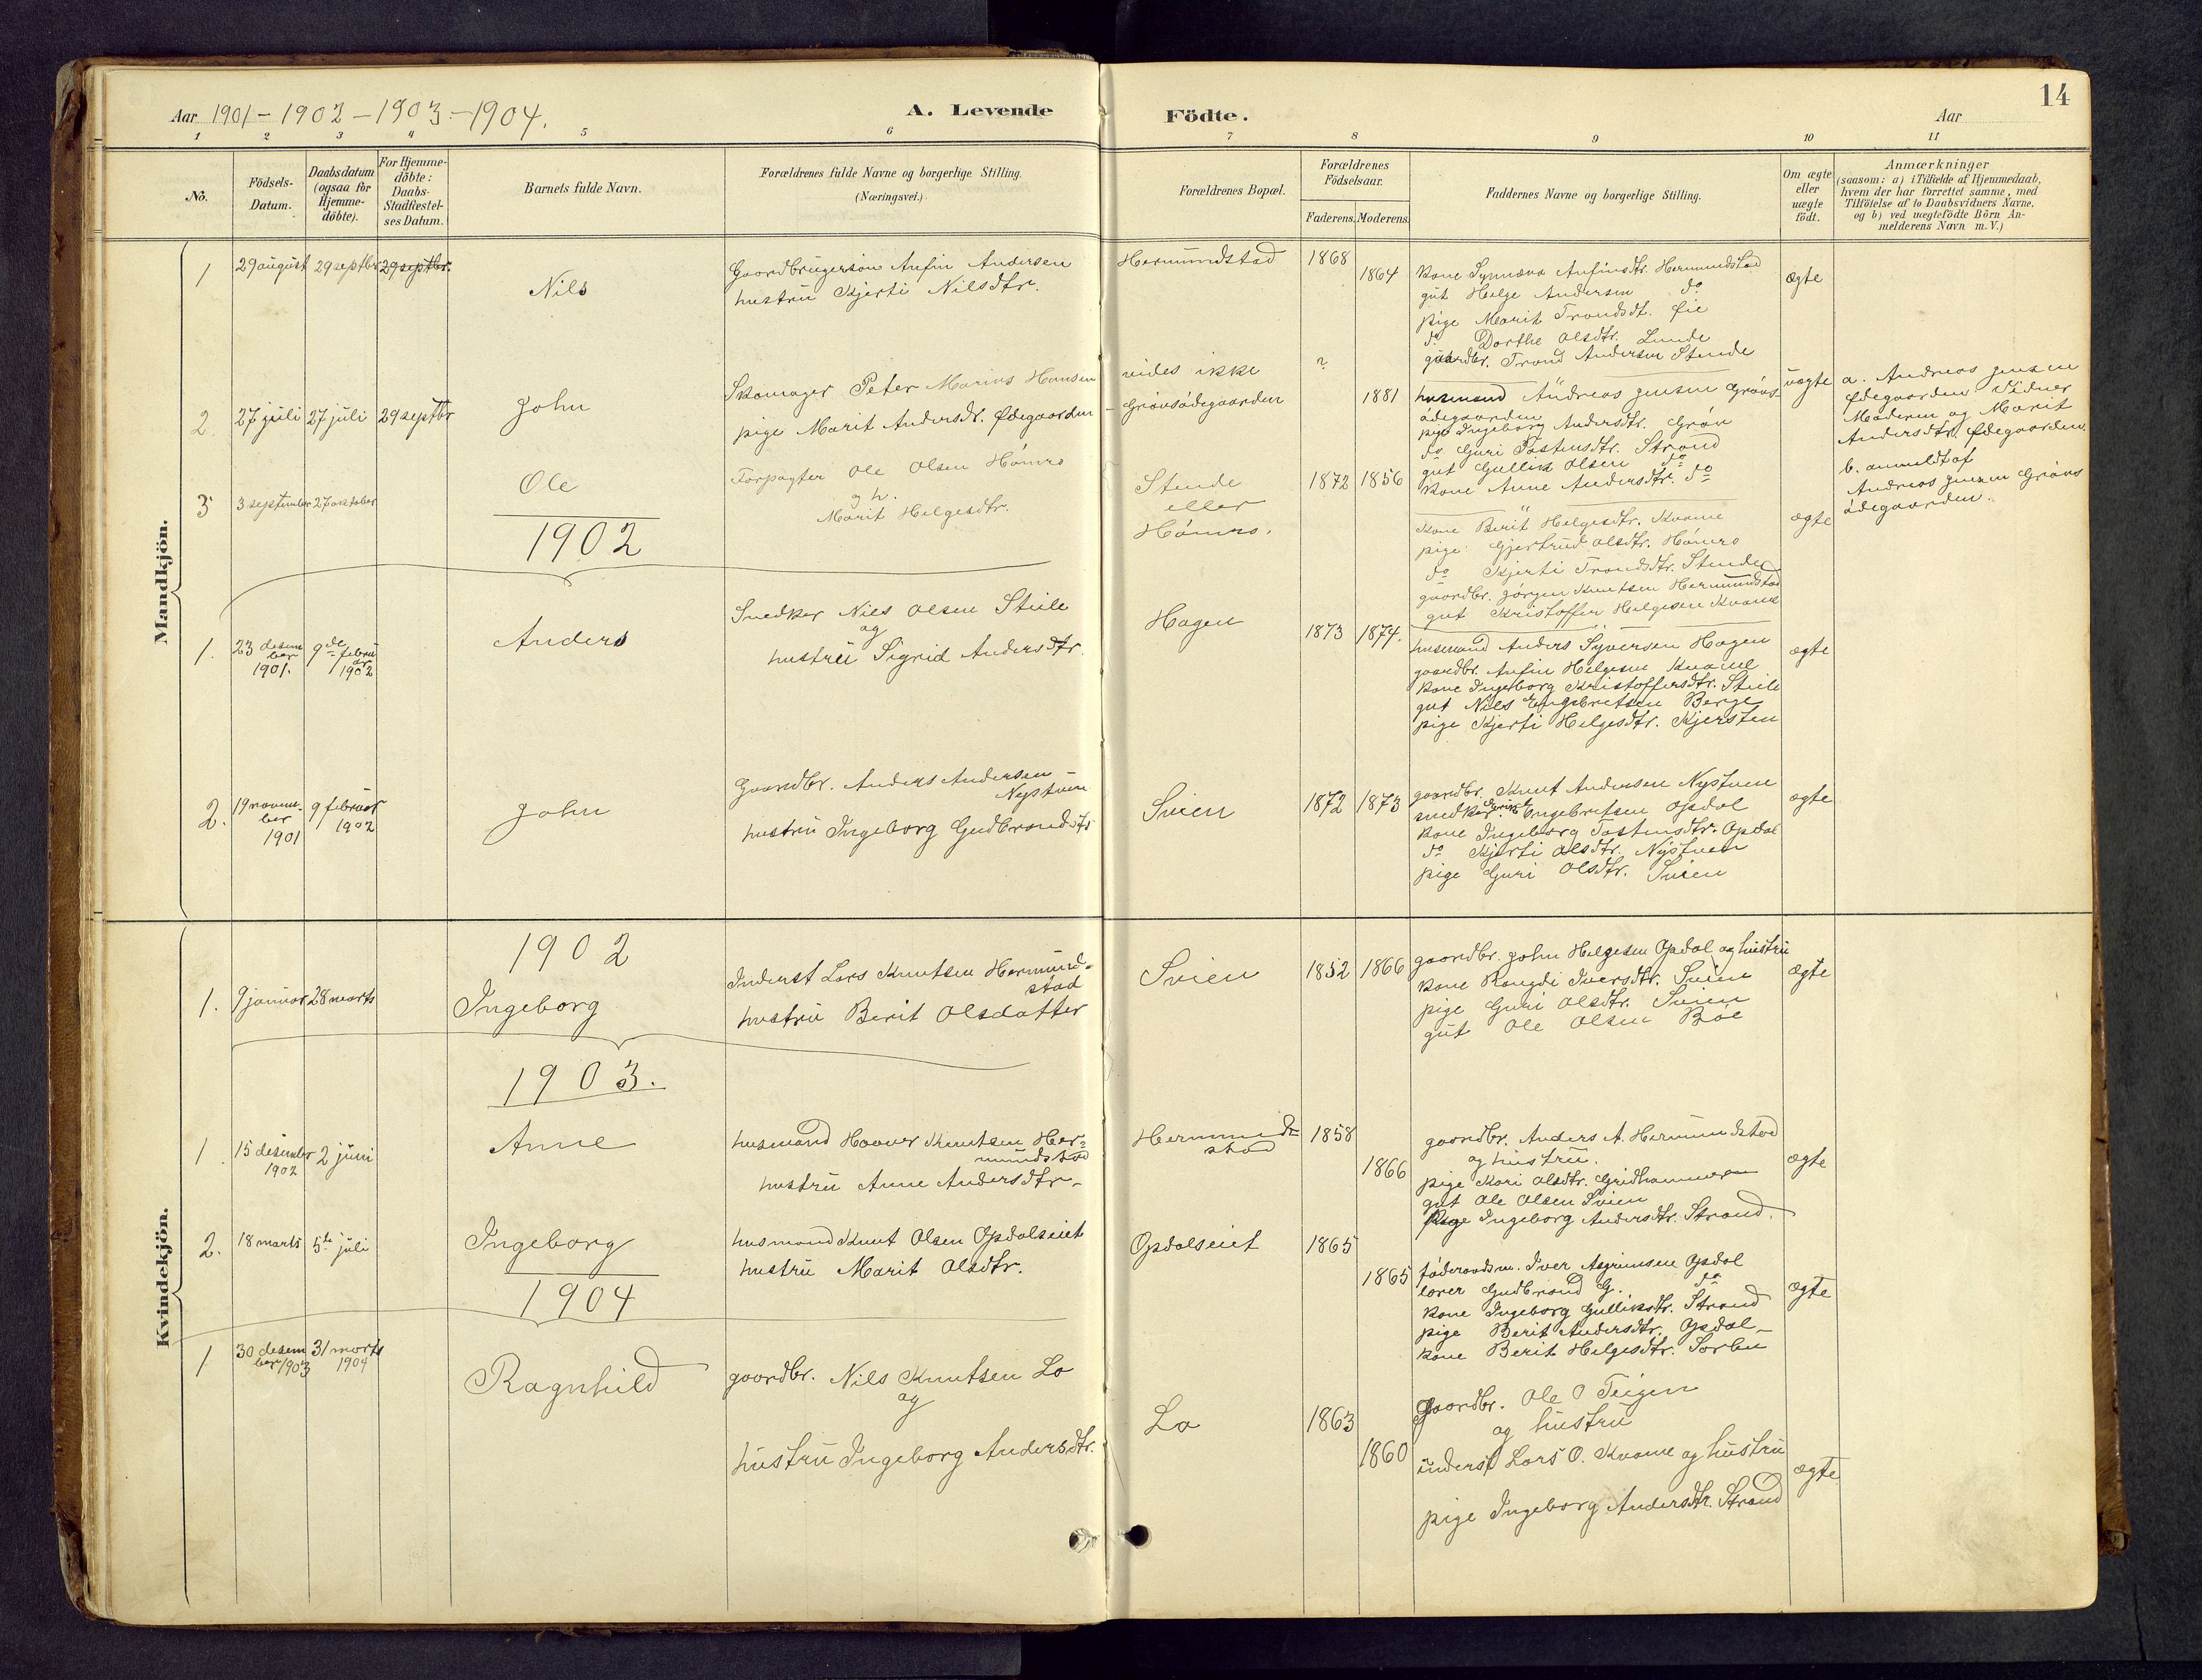 14
Aar 1901-1902-1903-1904.
A. Levende
Födte.
Aar
1 2 3 4 5 6 7 8 9 10 11
No.
Födsels-
Datum.
Daabsdatum
(ogsaa for
Hjemme-
döbte).
For Hjemme-
döbte:
Daabs-
Stadfæstel-
ses Datum.
Barnets fulde Navn.
Forældrenes fulde Navne og borgerlige Stilling.
(Næringsvei.)
Forældrenes Bopæl.
Forældrenes
Födselsaar.
Faderens. Moderens.
Faddernes Navne og borgerlige Stilling.
Om ægte
eller
uægte
födt.
Anmærkninger
(saasom: a) i Tilfælde af Hjemmedaab,
hvem der har forrettet samme, med
Tilföielse af to Daabsvidners Navne,
og b) ved uægtefödte Börn An-
melderens Navn m.V.)
Mandkjön.
1 29 august 29 septbr 29 septbr.
Nils
Gaardbrugersön Anfin Andersen
hustru Kjerti Nilsdtr.
Hermundstad
1868
1864
kone Synnøva Anfinsdtr. Hermundstad
gut Helge Andersen do
pige Marit Trondsdt. Øie
do Dorthe Olsdtr. Lunde
gaardbr. Trond Andersen Stende
ægte
2 27 juli 27 juli 29 septbr
John
Skomager Peter Marius Hansen
pige Marit Andersdr. Ødegaarden
vides ikke
Grönsödegaarden
?
1881
husmand Andreas Jensen Gröns-
ödegaarden
pige Ingeborg Andersdtr. Grön
do Guri Tostensdtr. Strand
gut Gullik Olsen do
kone Anne Andersdtr. do
uægte
a. Andreas Jensen
Ødegaarden Vidner
Moderen og Marit
Andersdtr. Ødegaarden.
b. anmeldt af
Andreas Jensen Gröns
ödegaarden.
3 3 september 27 oktober
Ole
Forpagter Ole Olsen Hömro
og h.
Marit Helgesdtr.
Stende
eller
Hömro.
1872 1856
kone Berit Helgesdtr. Kvame
pige Gjertrud Olsdtr. Hömro
do Kjerti Trondsdtr. Stende
gaardbr. Jörgen Knutsen Hermundstad
gut Kristoffer Helgesen Kvame
ægte
1902
1. 23 desem
ber
1901.
9de febru
ar
1902
Anders
Snedker Nils Olsen Stiile
og
hustru Sigrid Andersdtr.
Hagen
1873 1874.
husmand Anders Syversen Hagen
gaardbr. Anfin Helgesen Kvame
kone Ingeborg Kristoffersdtr. Stiile
gut Nils Engebretsen Berge
pige Kjerti Helgesdtr. Kjersten
ægte
2. 19 novem-
ber
1901
9 februar
1902
John
Gaardbr. Anders Andersen
Nystuen
hustru Ingeborg Gudbrandsdtr
Svien
1872 1873
gaardbr. Knut Andersen Nystuen
snedker Engebretsen Opdal
kone Ingeborg Tostensdtr. Opdal
do Kjerti Olsdtr. Nystuen
pige Guri Olsdtr. Svien
ægte
Kvindekjön.
1902
1. 9 januar 28 marts
Ingeborg
Inderst Lars Knutsen Hermund-
stad
hustru Berit Olsdatter
Svien
1852 1866
gaardbr. John Helgesen Opdal og hustru
kone Rangdi Iversdtr. Svien
pige Guri Olsdtr. Svien
gut Ole Olsen Böe
ægte
1903.
1 15 desember
1902
2 juni
Anne
husmand Haaver Knutsen Her-
mundstad
hustru Anne Andersdtr.
Hermund-
stad
1858
1866
gaardbr. Anders A. Hermundstad
og hustru.
pige Kari Olsdtr. Gridhammeren
gut Ole Olsen Svien
pige Ingeborg Andersdtr. Strand.
ægte
2. 18 marts 5te juli
Ingeborg
husmand Knut Olsen Opdalseiet
hustru Marit Olsdtr.
Opdalseiet
1865
1865
föderaadsm. Iver Asgrimsen Opdal
lærer Gudbrand G. do
kone Ingeborg Gulliksdtr. Strand
pige Berit Andersdtr. Opdal
kone Berit Helgesdtr. Sörbu
ægte
1904
1 30 desem
ber 1903
31 marts
1904
Ragnhild
gaardbr. Nils Knutsen Lo
og
hustru Ingeborg Andersdtr.
Lo
1863
1860
Gaardbr. Ole O Teigen
og hustru
inderst Lars O. Kvame og hustru
pige Ingeborg Andersdtr. Strand
ægte